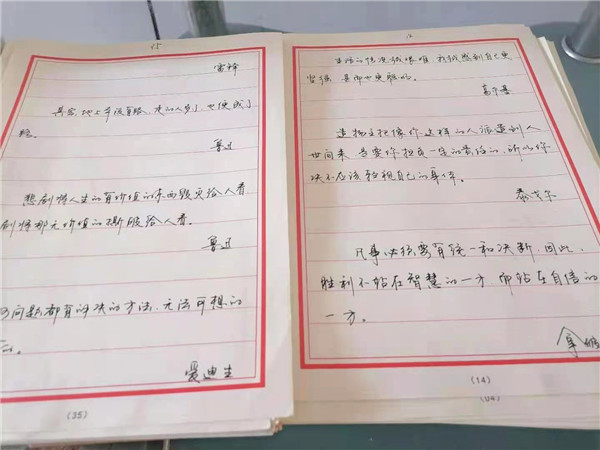 雷锋
其实地上本没有路,走的人多了,也便成了
路。
鲁迅
悲剧将人生的有价值的东西毁灭给人看
剧将那无价值的撕破给人看。
鲁迅
问题都有解决的方法,无法可想的
爱迪生
(35)
生活的情况越艰难,我越感到自己更
坚强,甚而也更聪明。
高尔基
造物主把像你这样的人派遣到人
世间来 是要你担负一定的责任的,所以你
决不应该轻视自己的身体。
泰戈尔
凡事必须要有统一和决断,因此,
胜利不站在智慧的一方 而站在自信的
一方。
拿破
(14)